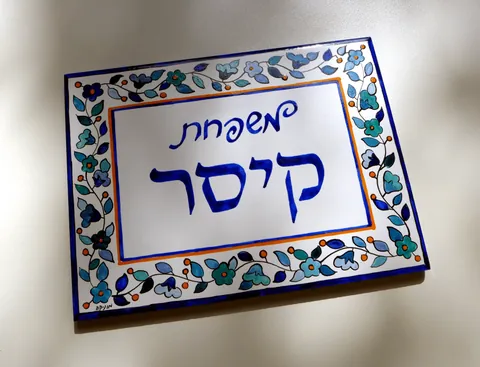 משפחת
קיסר